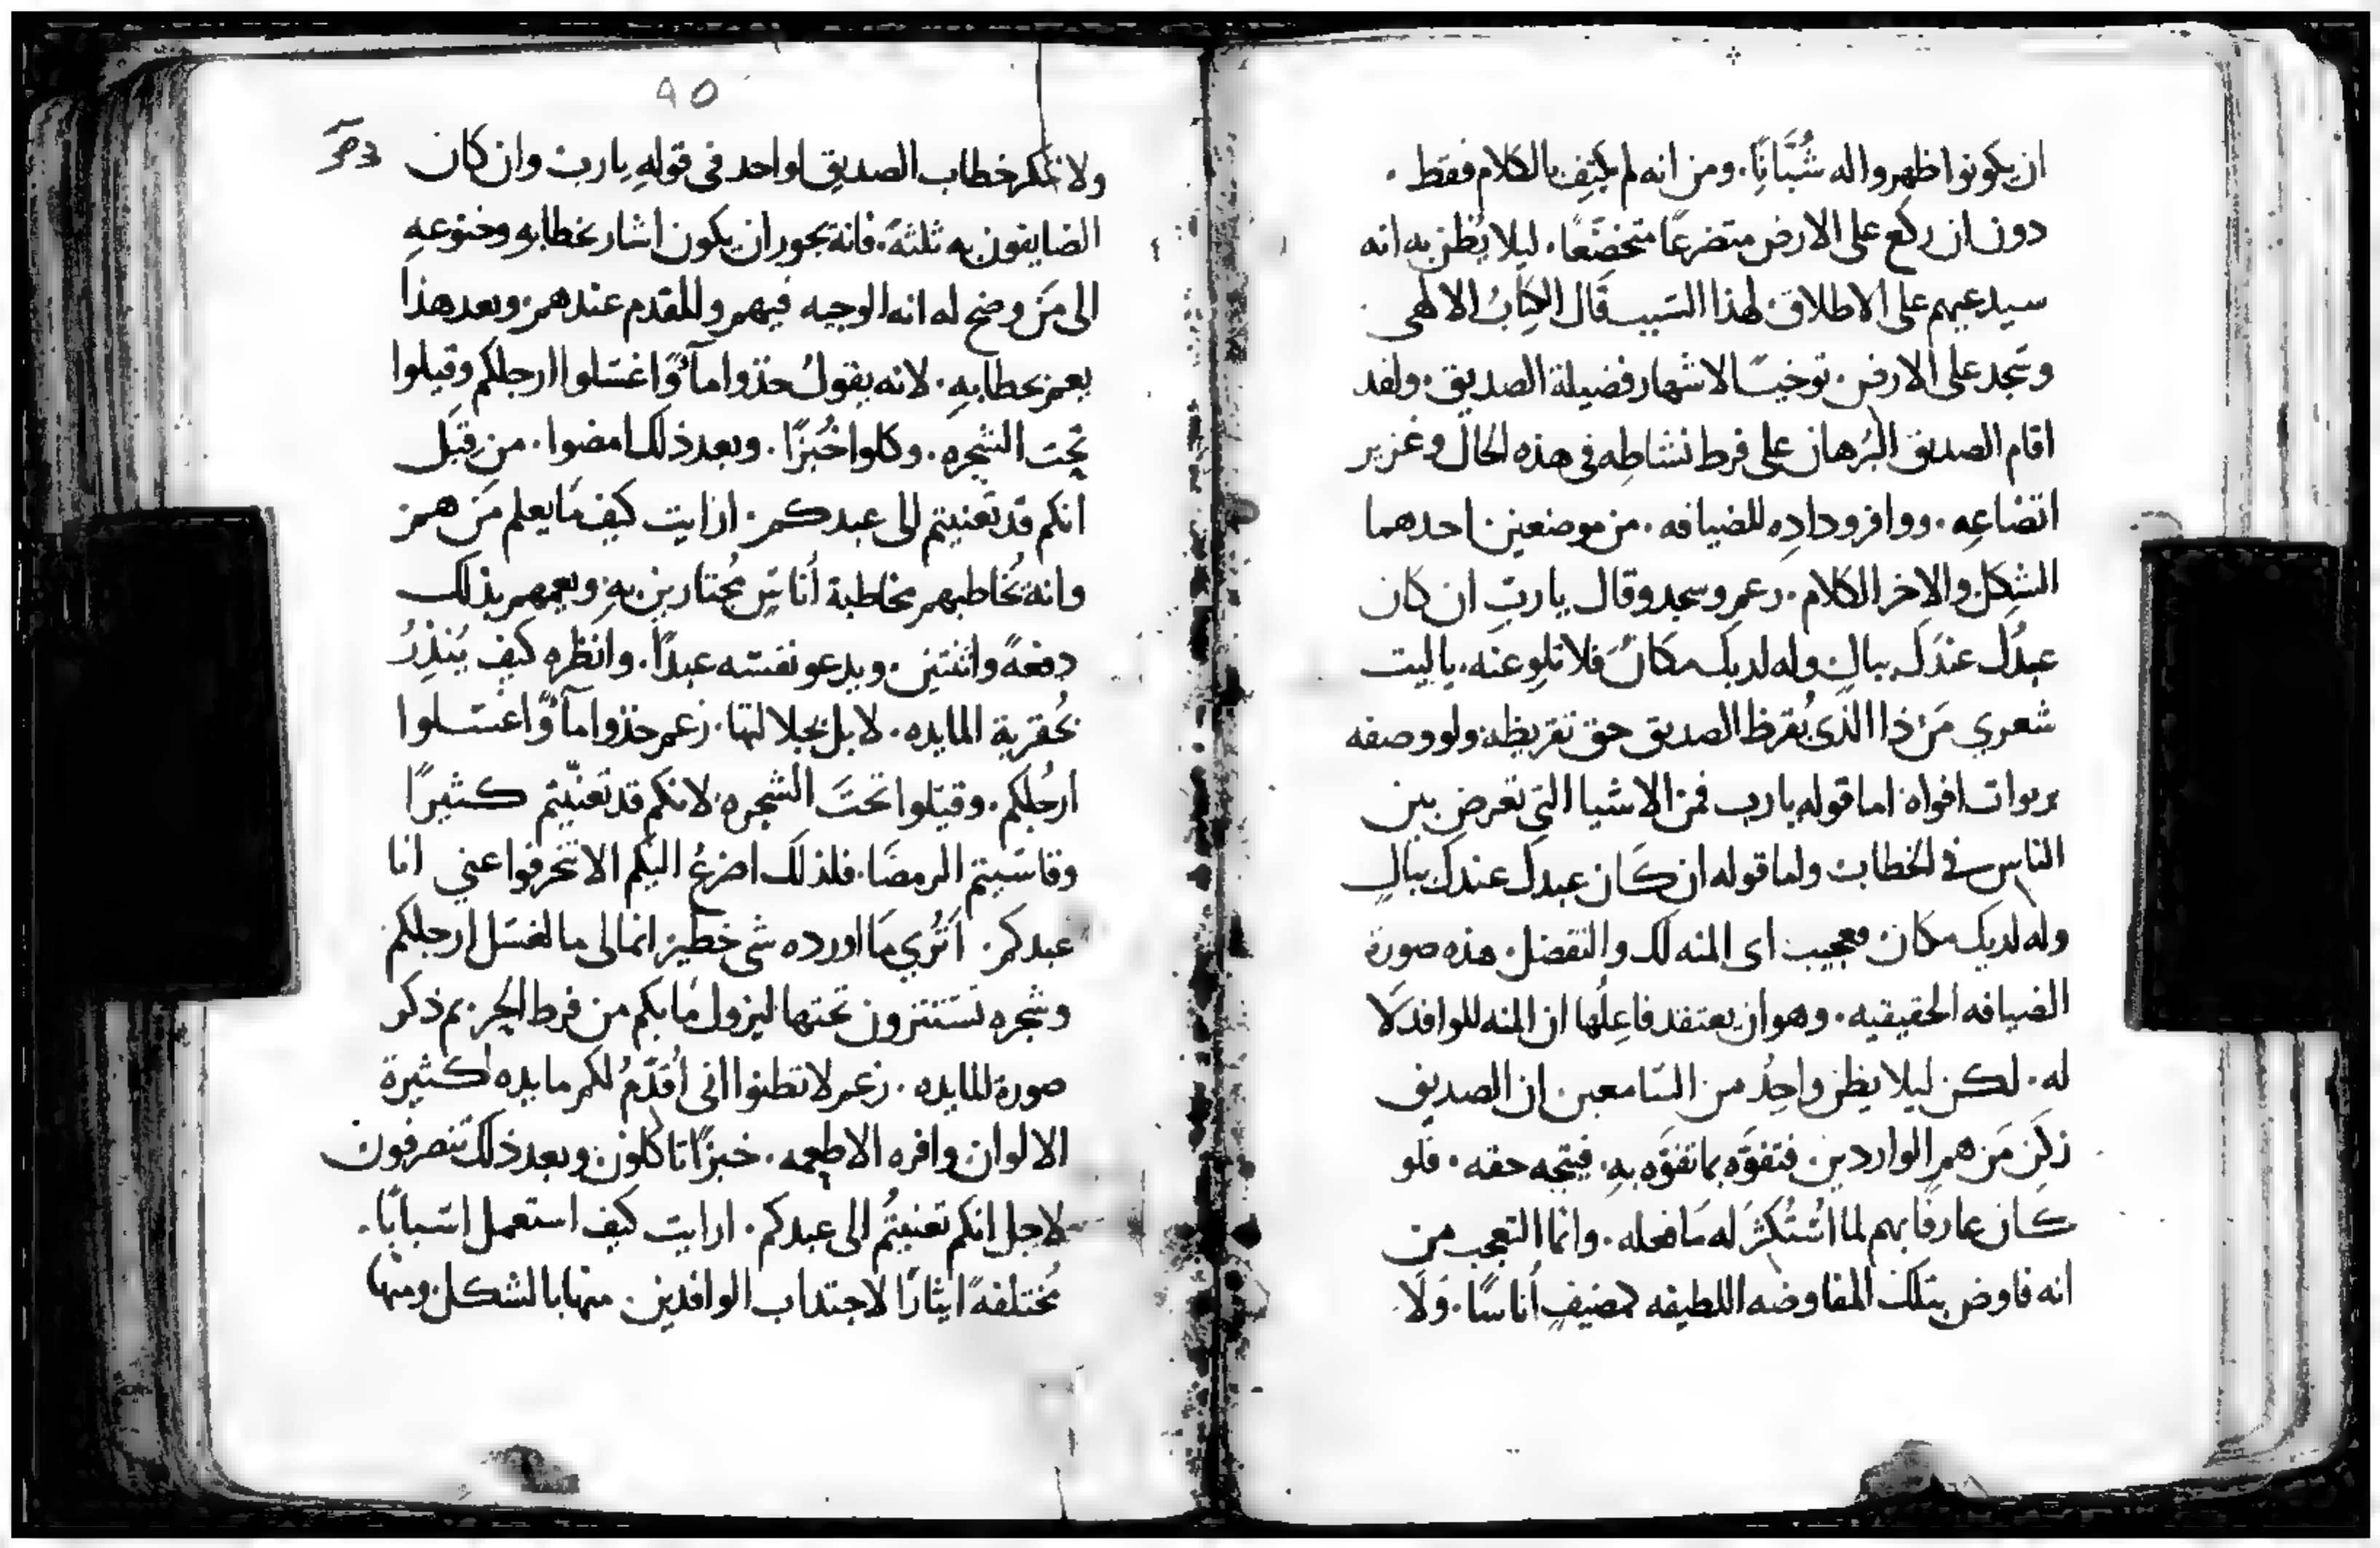 ان يكونوا ظهروا له شُبَّانًا. ومن انه لم يكتفِ بالكلام فقط.
دون ان ركع على الارض متضرعًا متخضعًا. ليلا يُظن به انه
سيدعيهم على الاطلاق لهذا السبب قال الكتابُ الالهى
وسَجد على الارض. توخيًا لاشهار فضيلة الصديق. ولقد
اقام الصديق البُرهان على فرط نشاطِه فى هذه الحال وغزير
اتضاعِه. ووافر ودادِه للضيافه. من موضعين احدهما
الشكل والاخر الكلام. زعم وسجد وقال يا ربِ ان كان
عبدُك عندَك ببالٍ وله لديك مكانٌ فلا تلوِ عنه. يا ليت
شعري مَن ذا الذى يُقرظ الصديق حق تقريظه ولو وصفه
بربوات افواه اما قوله يا رب فمن الاشيا التى تعرض بين
الناس فى الخطاب واما قوله ان كان عبدك عندك ببالٍ
وله لديك مكان فعجيب اى المنه لك والتفضل. هذه صورة
الضيافه الحقيقيه. وهو ان يعتقد فاعِلُها ان المنه للوافد لا
له. لكن ليلا يظن واحِدٌ من السَامعين ان الصديق
زكِن مَن هم الواردين فتفوَّه بما تفوَّه بهِ. فيتجه حقه. فلو
كان عارفًا بهم لما اسُتُكثرَ له مَا فعله. وانما التعجب من
انه فاوض بتلك المفاوضه اللطيفه لمضيفٍ أناسًا. وَلَا
٩٥
ولا تنكر خطاب الصديق لواحد فى قولهِ يا رب وان كان
الضايفون به ثلثهً. فانه يجوز ان يكون اشار بخطابه وخنوعهِ
الى مَن وضح له انه الوجيه فيهم والمقدم عندهم. وبعد هذا
يعمّ بخطابهِ. لانه يقولُ خذوا مآءً واغسَلوا ارجلكم وقيلوا
تحت الشجره. وكلوا خُبزًا. وبعد ذلك امضوا. من قبَل
انكم قد تعنيتم الى عبدكم. ارايت كيف مَا يعلم مَن هم
وانه يُخاطبهم مخاطبة أناسٍ مُجتازين بهِ. ويعمهم بذلك
دفعهً واثنتين. ويدعو نفسَه عبدًا. وانظره كيف يُنذِرُ
بحُقرية المايده. لا بل بجلالتها. زعم خذوا مآءً واغسَلوا
ارجُلكم. وقيلوا تحتَ الشجره. لانكم قد تعنّيتم كثيرًا
وقاسَيتم الرمضَا. فلذلك اضرعُ اليكم الا تنحرفوا عني انا
عبدكم. اتُري مَا اورده شى خطير. انما لى ما لغسَل ارجلكم
وشجره تسَتترون تحتها ليزول مَا بكم من فرط الحر. ثم ذكر
صورة المايده. زعم لا تظنوا انى أُقدّمُ لكم مايده كثيرة
الالوان وافره الاطعِمه. خبزًا تاكلون وبعد ذلك تنصرفون
لاجل انكم تعنيتُم الى عبدكم. ارايت كيف استعمل اسَبابًا.
مُختلفهً ايثارًا لاجتداب الوافدين. منها بالشكل ومنها